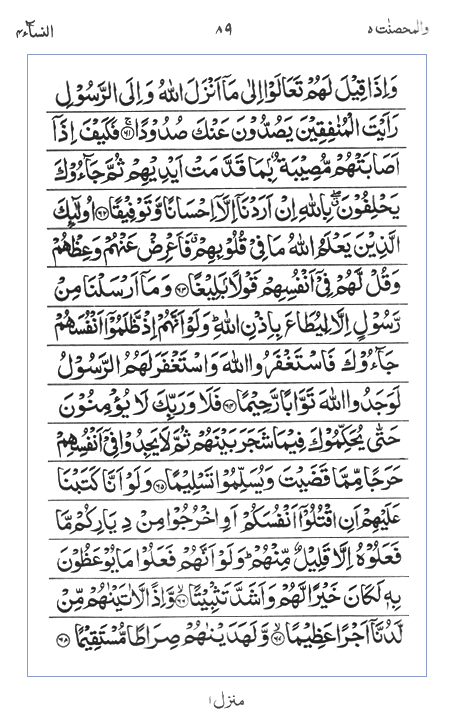 والمحصنت ۵ ۸۹ النسآء ۴
وَاِذَا قِيْلَ لَهُمْ تَعَالَوْا اِلٰى مَآ اَنْزَلَ اللّٰهُ وَاِلَى الرَّسُوْلِ
رَاَيْتَ الْمُنٰفِقِيْنَ يَصُدُّوْنَ عَنْكَ صُدُوْدًا ۚ‏﴿۶۱﴾ فَكَيْفَ اِذَآ
اَصَابَتْهُمْ مُّصِيْبَةٌۢ بِمَا قَدَّمَتْ اَيْدِيْهِمْ ثُمَّ جَآءُوْكَ
يَحْلِفُوْنَ ۖ بِاللّٰهِ اِنْ اَرَدْنَآ اِلَّآ اِحْسَانًا وَّتَوْفِيْقًا ﴿۶۲﴾ اُولٰٓئِكَ
الَّذِيْنَ يَعْلَمُ اللّٰهُ مَا فِيْ قُلُوْبِهِمْ ۗ فَاَعْرِضْ عَنْهُمْ وَعِظْهُمْ
وَقُلْ لَّهُمْ فِيْٓ اَنْفُسِهِمْ قَوْلًاۢ بَلِيْغًا ﴿۶۳﴾ وَمَآ اَرْسَلْنَا مِنْ
رَّسُوْلٍ اِلَّا لِيُطَاعَ بِاِذْنِ اللّٰهِ ۗ وَلَوْ اَنَّهُمْ اِذْ ظَّلَمُوْٓا اَنْفُسَهُمْ
جَآءُوْكَ فَاسْتَغْفَرُوا اللّٰهَ وَاسْتَغْفَرَ لَهُمُ الرَّسُوْلُ
لَوَجَدُوا اللّٰهَ تَوَّابًا رَّحِيْمًا ﴿۶۴﴾ فَلَا وَرَبِّكَ لَا يُؤْمِنُوْنَ
حَتّٰى يُحَكِّمُوْكَ فِيْمَا شَجَرَ بَيْنَهُمْ ثُمَّ لَا يَجِدُوْا فِيْٓ اَنْفُسِهِمْ
حَرَجًا مِّمَّا قَضَيْتَ وَيُسَلِّمُوْا تَسْلِيْمًا ﴿۶۵﴾ وَلَوْ اَنَّا كَتَبْنَا
عَلَيْهِمْ اَنِ اقْتُلُوْٓا اَنْفُسَكُمْ اَوِ اخْرُجُوْا مِنْ دِيَارِكُمْ مَّا
فَعَلُوْهُ اِلَّا قَلِيْلٌ مِّنْهُمْ ۗ وَلَوْ اَنَّهُمْ فَعَلُوْا مَا يُوْعَظُوْنَ
بِهٖ لَكَانَ خَيْرًا لَّهُمْ وَاَشَدَّ تَثْبِيْتًا ﴿۶۶﴾ وَّاِذًا لَّاٰتَيْنٰهُمْ مِّنْ
لَّدُنَّآ اَجْرًا عَظِيْمًا ﴿۶۷﴾ وَّلَهَدَيْنٰهُمْ صِرَاطًا مُّسْتَقِيْمًا ﴿۶۸﴾
منزل ۱